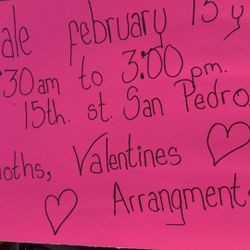 ale february 15 y
:30am to 3:00 pm.
15th. st. San Pedro
oths, Valentines
Arrangment